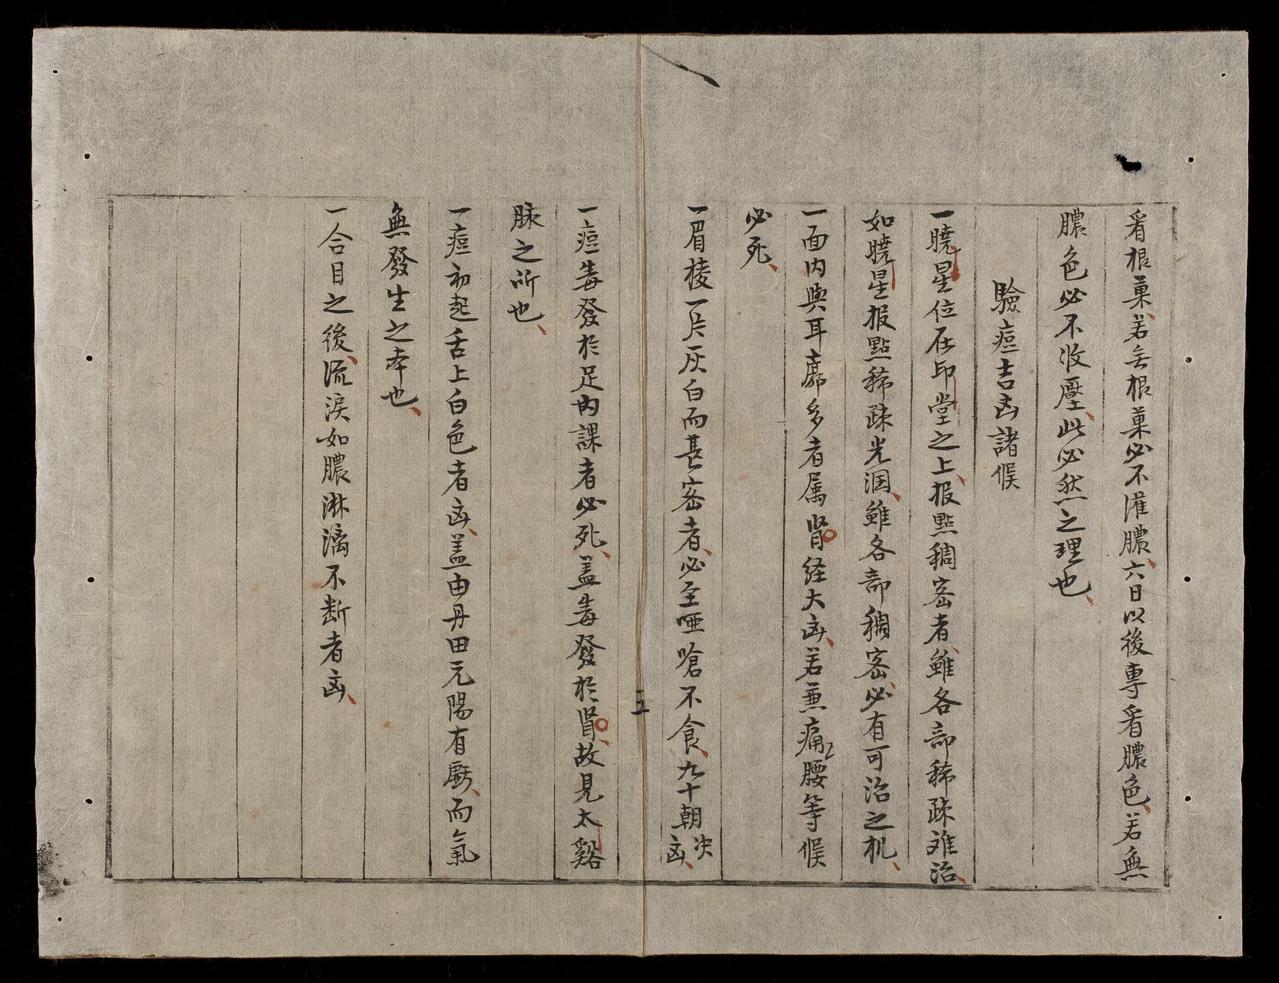 看根菓、若無根菓必不灌膿、六日以後專看膿色、若無
膿色必不收壓、此必然之理也、
驗痘吉凶諸候
一曉星位在印堂之上、报點稠密者、雖各部稀疎难治、
如曉星报點稀疎光润、雖各部稠密、必有可治之机、
一面内與耳廓多者属腎経大凶、若兼痛腰等候
必死、
一眉棱一片灰白而甚密者、必至哑嗆不食、九十朝决凶、
五
一痘毒發於足内踝者必死、盖毒發於腎、故見太谿
脉之所也、
一痘初起舌上白色者凶、盖由丹田元陽有厥、而氣
無發生之本也、
一合目之後、流淚如膿淋漓不断者凶、